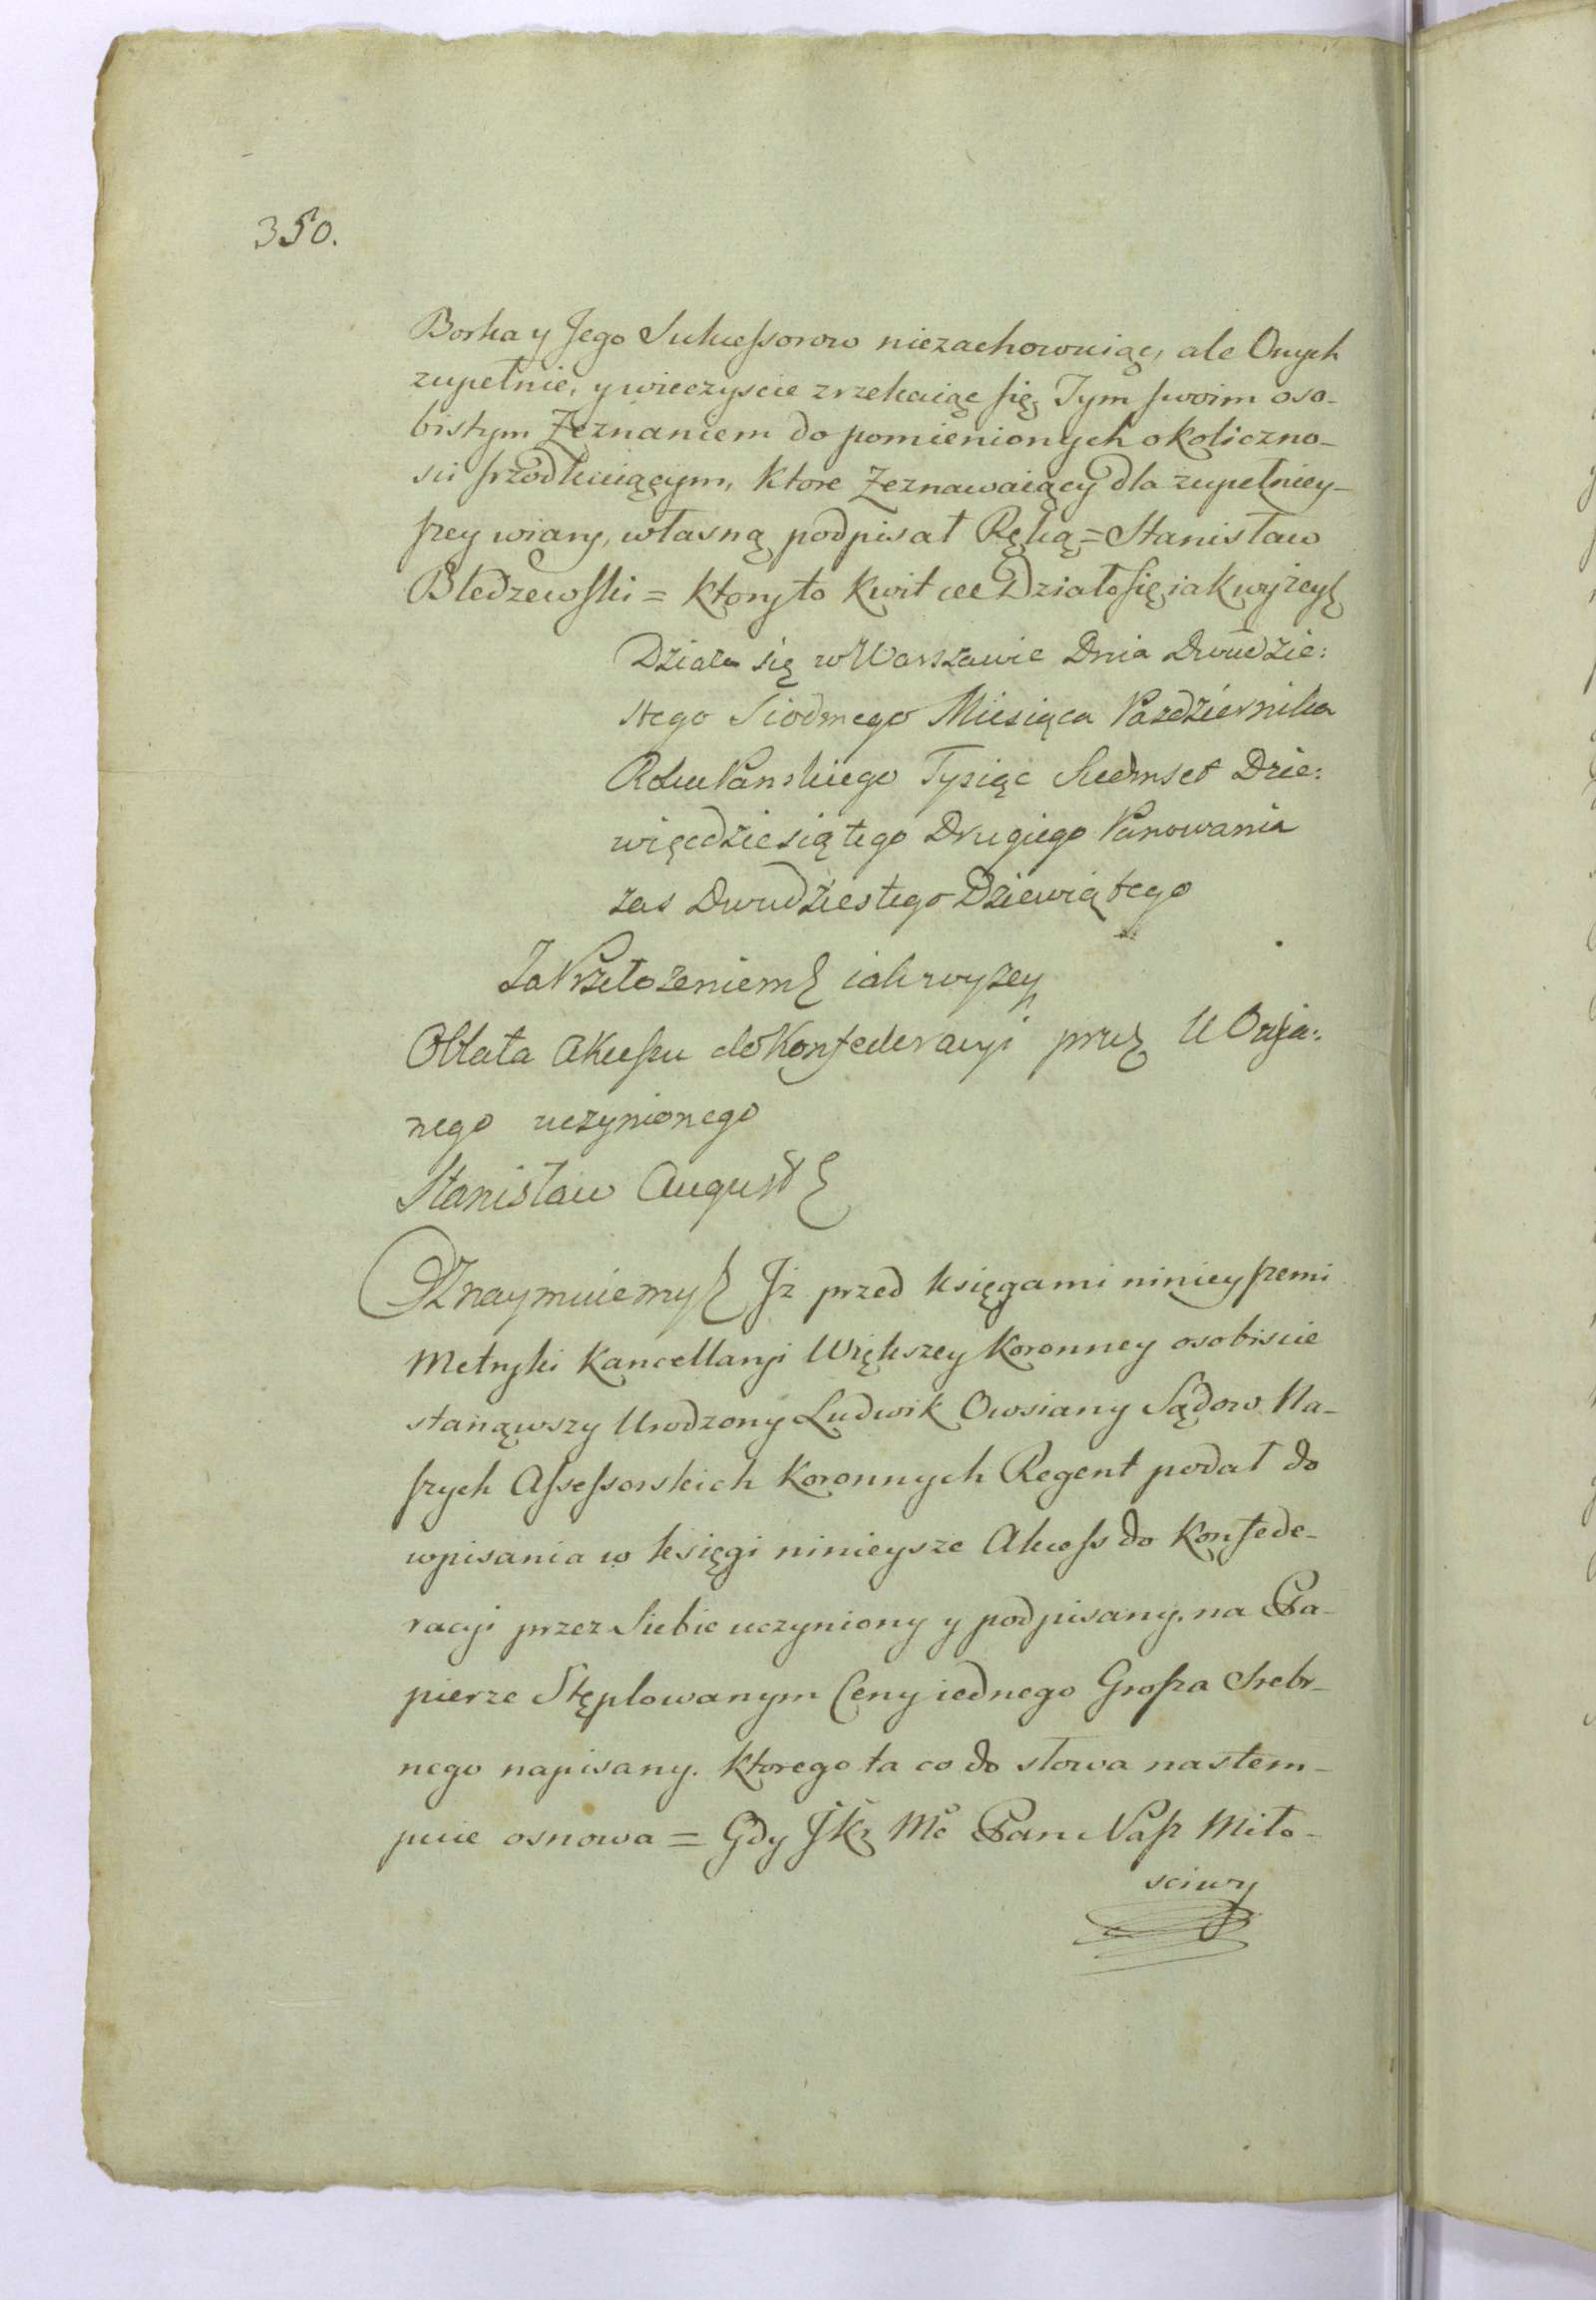 350.
Borka y Jego Sukcessorow niezachowuiąc, ale Onych
zupełnie, y wieczyscie zrzekaiąc się, Tym swoim oso-
bistym Zeznaniem do pomienionych okoliczno-
sci szrodkuiącym, ktore Zeznawaiący dla zupełniey-
szey wiary, własną podpisał Ręką = Stanisław
Bledzewski = ktory to kwit etc Działo się iak wyżey
Działo się w Warszawie Dnia Dwudzie:
stego Siodmego Miesiąca Pazdziernika
Roku Panskiego Tysiąc Siedmset Dzie:
więcdziesiątego Drugiego Panowania
zas Dwudziestego Dziewiątego
Za Przełożeniem iak wyzey
Oblata Akcessu do Konfederacyi przez U Owsia:
nego uczynionego
Stanisław August
Oznaymuiemy Jż przed księgami ninieyszemi
Metryki Kancellaryi Większey Koronney osobiscie
stanąwszy Urodzony Ludwik Owsiany Sądow Na-
szych Assessorskich Koronnych Regent podał do
wpisania w księgi ninieysze Akcess do Konfede-
racyi przez Siebie uczyniony y podpisany, na Pa-
pierze Stęplowanym Ceny iednego Grosza Srebr-
nego napisany. ktorego ta co do słowa nastem-
puie osnowa = Gdy JK Mć Pan Nasz Miło-
sciwy